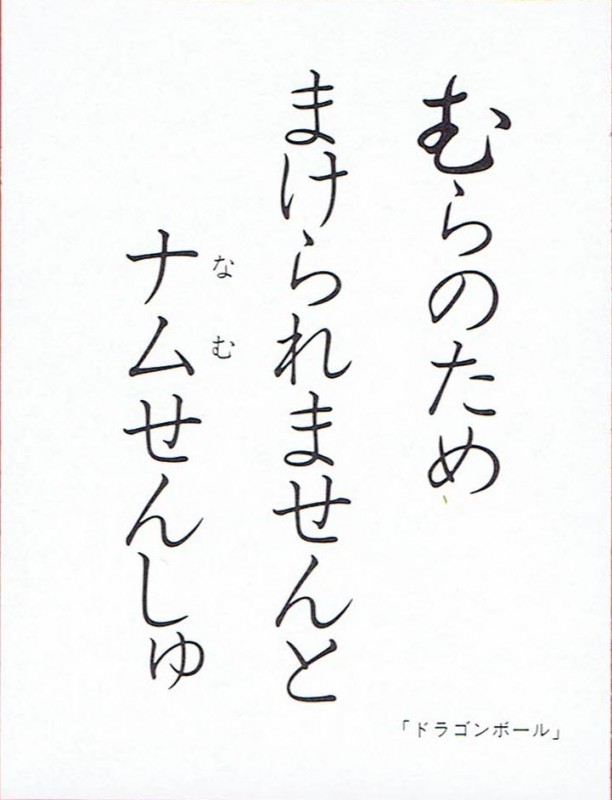 むらのため
まけられませんと
ナムせんしゅ
なむ
「ドラゴンボール」